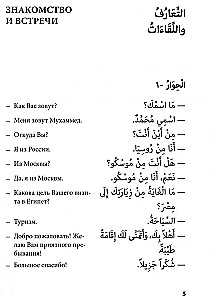 ЗНАКОМСТВО
И ВСТРЕЧИ
التَّعَارُفُ
واللِّقَاءَاتُ
الْحِوَارُ -١
– Как Вас зовут?
– مَا اسْمُكَ؟
– Меня зовут Мухаммед.
– اسْمِي مُحَمَّدٌ.
– Откуда Вы?
– مِنْ أَيْنَ أَنْتَ؟
– Я из России.
– أَنَا مِنْ رُوسِيَا.
– Из Москвы?
– هَلْ أَنْتَ مِنْ مُوسْكُو؟
– Да, я из Москвы.
– نَعَمْ، أَنَا مِنْ مُوسْكُو.
– Какова цель Вашего визи-
та в Египет?
– مَا الْغَايَةُ مِنْ زِيَارَتِكَ إِلَى
مِصْرَ؟
– Туризм.
– السِّيَاحَةُ.
– Добро пожаловать! Же-
лаю Вам приятного пре-
бывания!
– أَهْلًا بِكَ، وَأَتَمَنَّى لَكَ إِقَامَةً
طَيِّبَةً
– Большое спасибо!
– شُكْرًا جَزِيلًا.
5